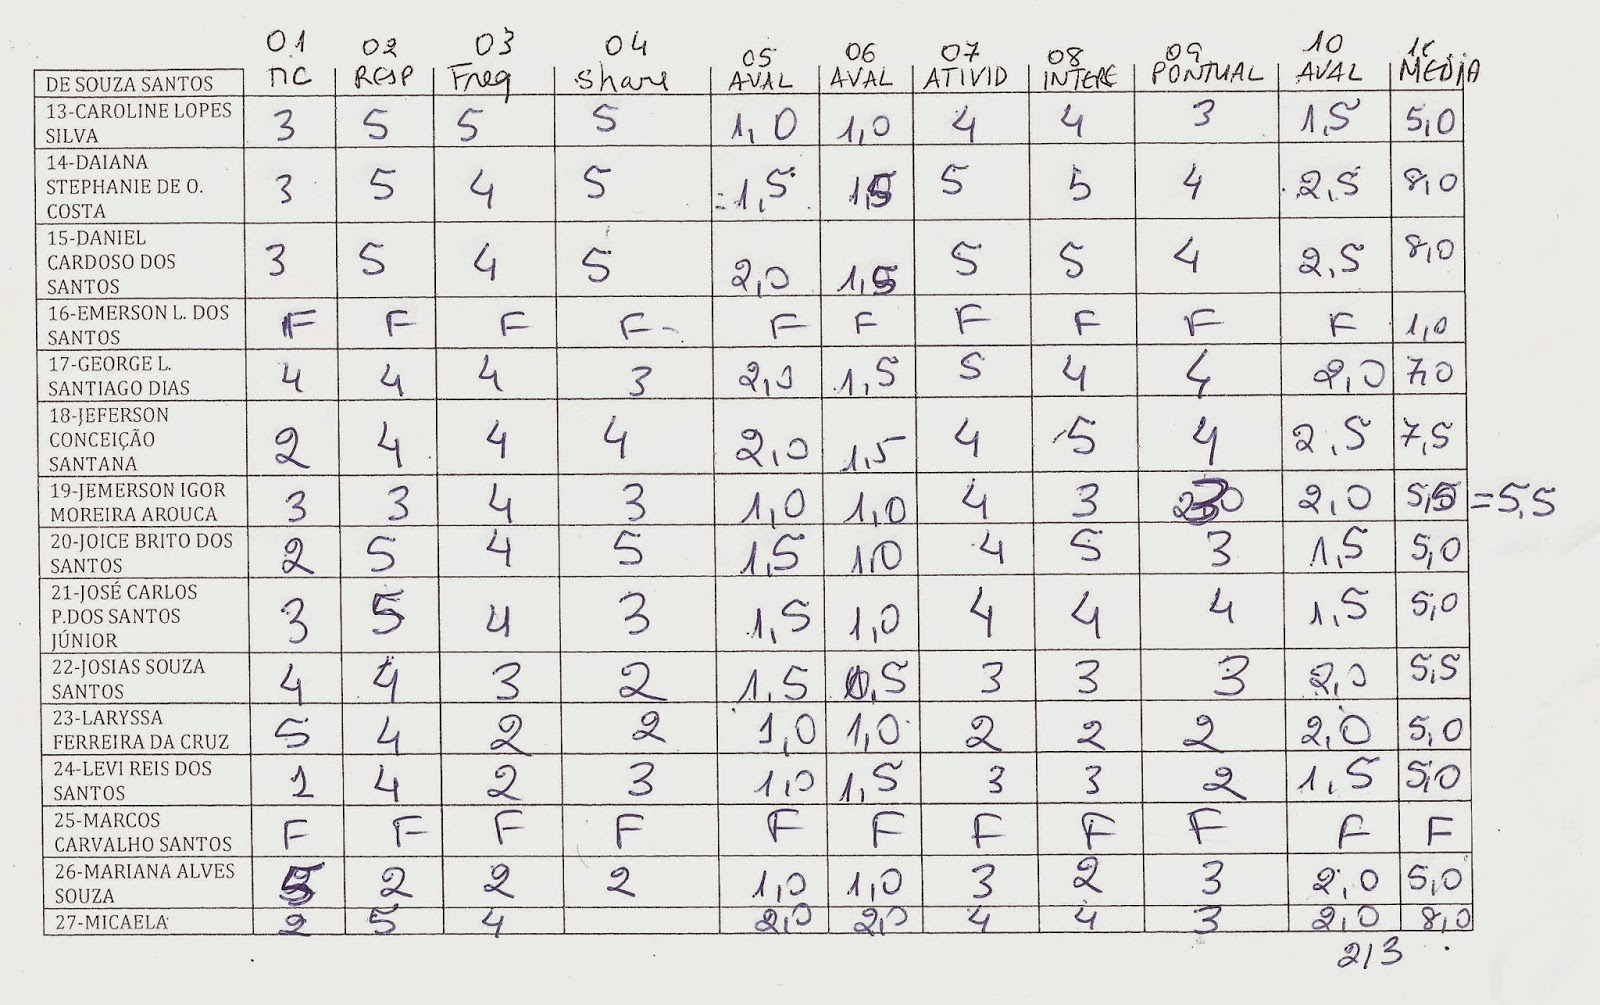 01 02 03 04 05 06 07 08 09 10
DE SOUZA SANTOS TIC RESP Freq Share AVAL AVAL ATIVID INTERE PONTUAL AVAL MEDIA
13-CAROLINE LOPES
SILVA 3 5 5 5 1,0 1,0 4 4 3 1,5 5,0
14-DAIANA
STEPHANIE DE O.
COSTA 3 5 4 5 1,5 1,5 5 5 4 2,5 8,0
15-DANIEL
CARDOSO DOS
SANTOS 3 5 4 5 2,0 1,5 5 5 4 2,5 8,0
16-EMERSON L. DOS
SANTOS F F F F F F F F F F 1,0
17-GEORGE L.
SANTIAGO DIAS 4 4 4 3 2,0 1,5 5 4 4 2,0 7,0
18-JEFERSON
CONCEIÇÃO
SANTANA 2 4 4 4 2,0 1,5 4 5 4 2,5 7,5
19-JEMERSON IGOR
MOREIRA AROUCA 3 3 4 3 1,0 1,0 4 3 3 2,0 5,5 =5,5
20-JOICE BRITO DOS
SANTOS 2 5 4 5 1,5 1,0 4 5 3 1,5 5,0
21-JOSÉ CARLOS
P.DOS SANTOS
JÚNIOR 3 5 4 3 1,5 1,0 4 4 4 1,5 5,0
22-JOSIAS SOUZA
SANTOS 4 4 3 2 1,5 0,5 3 3 3 2,0 5,5
23-LARYSSA
FERREIRA DA CRUZ 5 4 2 2 1,0 1,0 2 2 2 2,0 5,0
24-LEVI REIS DOS
SANTOS 1 4 2 3 1,0 1,5 3 3 2 1,5 5,0
25-MARCOS
CARVALHO SANTOS F F F F F F F F F F F
26-MARIANA ALVES
SOUZA 2 2 2 1,0 1,0 3 2 3 2,0 5,0
27-MICAELA 2 5 4 2,0 2,0 4 4 3 2,0 8,0
2/3